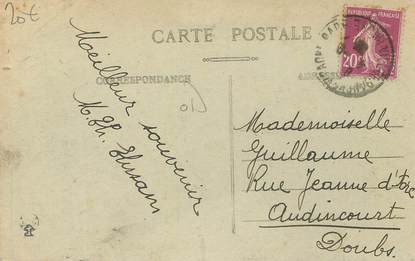 20€
CARTE POSTALE
CORRESPONDANCE
Meilleur souvenir
M. Th.
RÉPUBLIQUE FRANÇAISE
20c
Mademoiselle
Guillaume
Rue Jeanne d'Arc
Audincourt
Doubs.